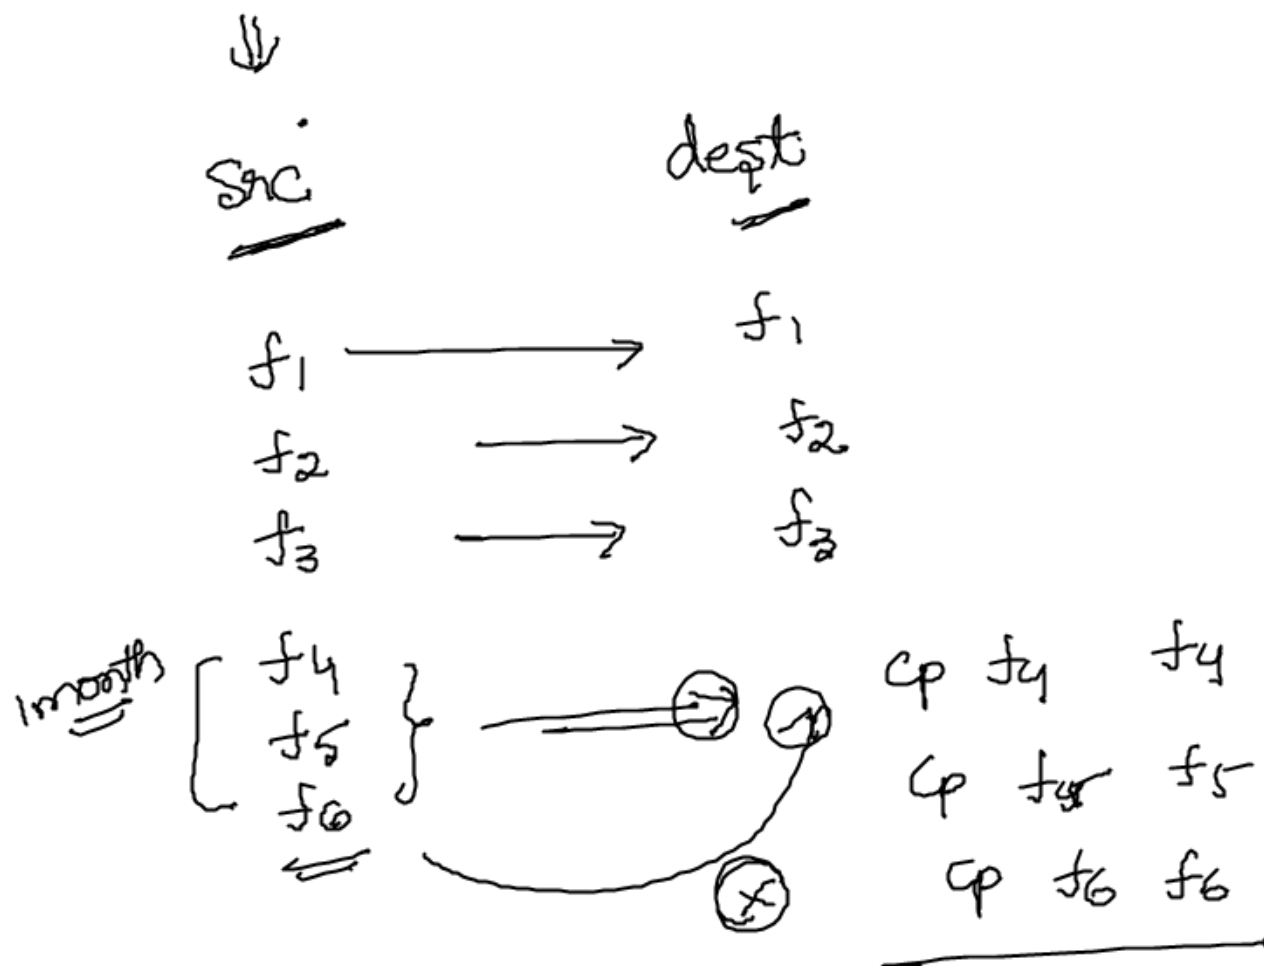 src dest
f1 f1
f2 f2
f3 f3
1month f4 cp f4 f4
f5 cp f5 f5
f6 cp f6 f6